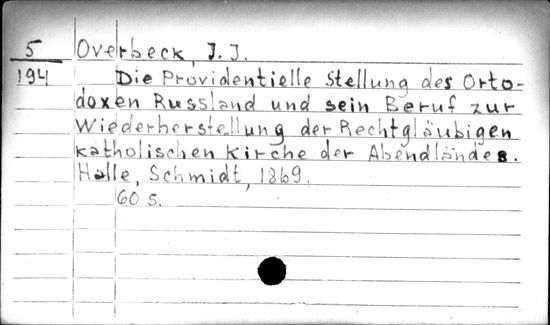 5 Overbeck, J. J.
194 Die Providentielle Stellung des Orto-
doxen Russland und sein Beruf zur
Wiederherstellung der Rechtgläubigen
katholischen Kirche der Abendländes.
Halle, Schmidt, 1869.
60 S.